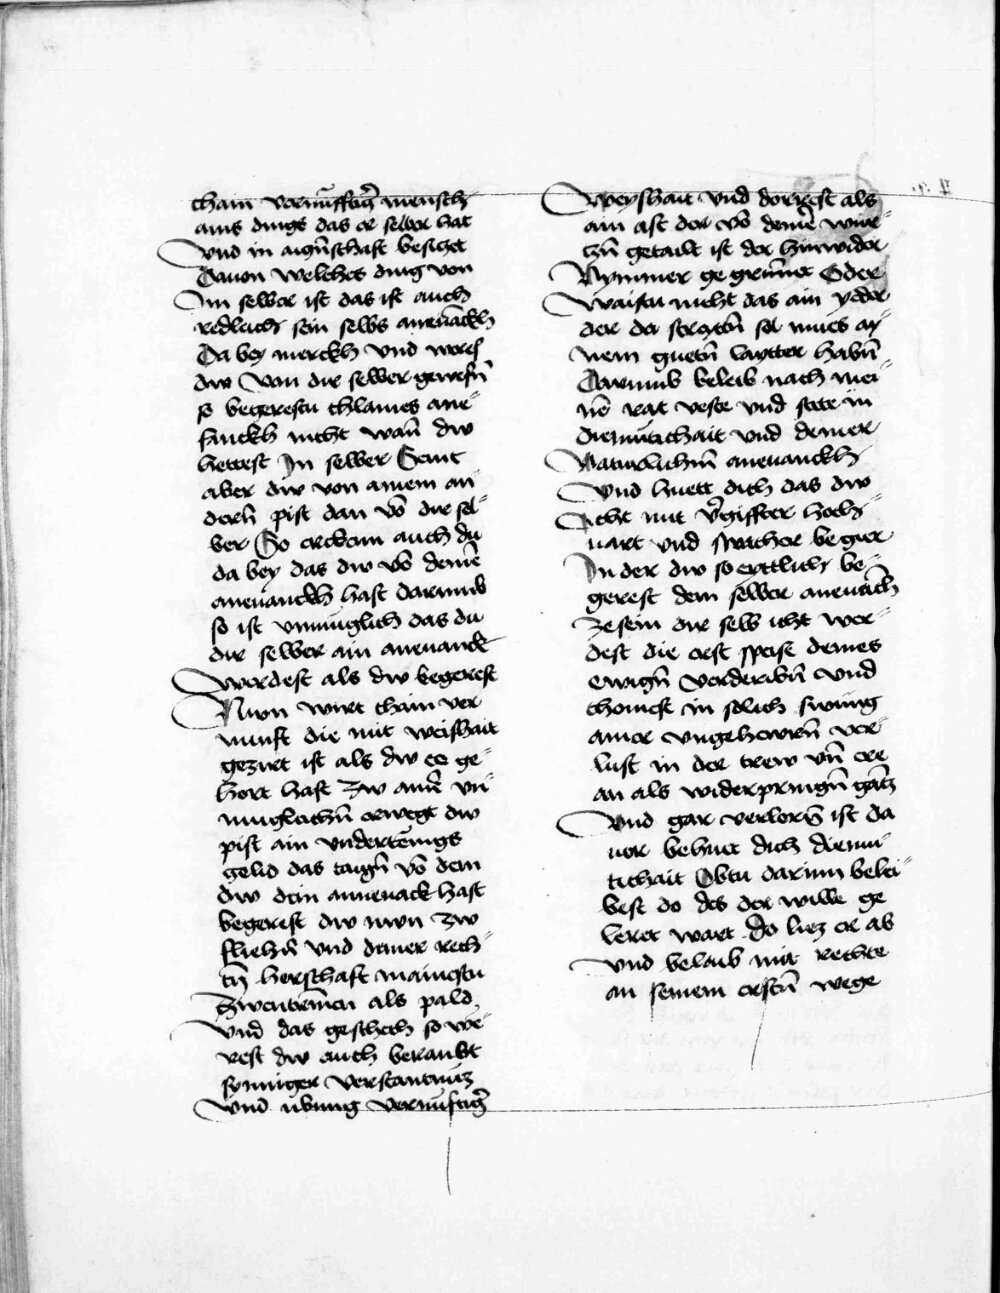 chain vernufftig̃ mensch
ains dings das er selber hat
Vnd in aigñschaft besiczt
Dauon welches ding von
Im selber ist das ist auch
redleich sein selbs aneuãckh
Da bey merckh vnd
dw von dir selber gewesñ
so begerestu chlaines ane-
fanckh nicht wañ dw
hettest In selber Seint
aber dw von ainem an
derñ pist dan võ dir sel-
ber So erckenn auch du
da bey das dw võ deinẽ
aneuanckh hast darumb
so ist vnmuglich das du
dir selber ain aneuanck
werdest als dw begerest
Nwn wirt chain ver
nunft die mit weishait
gezirt ist als dw ee ge-
hort hast zw ainẽ vn
muglichñ erwegt dw
pist ain vndertenigs
gelid das taigñ võ dem
dw dein anneuack hast
begerist dw nwn zw
fliehñ vnd deiner rech-
tñ herschaft mainestu
Zwentrinẽn als pald
vnd das geschech so we-
rest dw auch beraubt
synniger verstantnuz
vnd übung vernuftig̃
Weyshait vnd dorrest als
ain ast der võ deinẽ wur-
czñ getailt ist der hinwider
Nymmer ge grunet Oder
Waistu nicht das ain yeder
der da streytñ sol mues ay-
nem guetñ laytter habñ
Darumb beleib nach mei-
nẽ rat veste vnd stete in
diemutichait vnd deiner
Naturlichñ aneuanckh
Vnd huett dich das dw
Icht mit ṽgiffter hoch-
uart vnd begier
In der dw so eyttlich be-
gerest dein selber aneuãch
ze sein dir selb icht wer-
dest die erst speise deines
ewigñ verderibñ vnd
chomest in solich
ainer vngehewrñ ver-
lust in der trew vñ ere
an als widerpringñ gãtz
Vnd gar verlorñ ist da
uor behuet dich diemu-
tichait Obtu darinn belei-
best do des der wille ge
leret wart Do liez er ab
vnd belaib mit rechte
an seinem erstñ wege